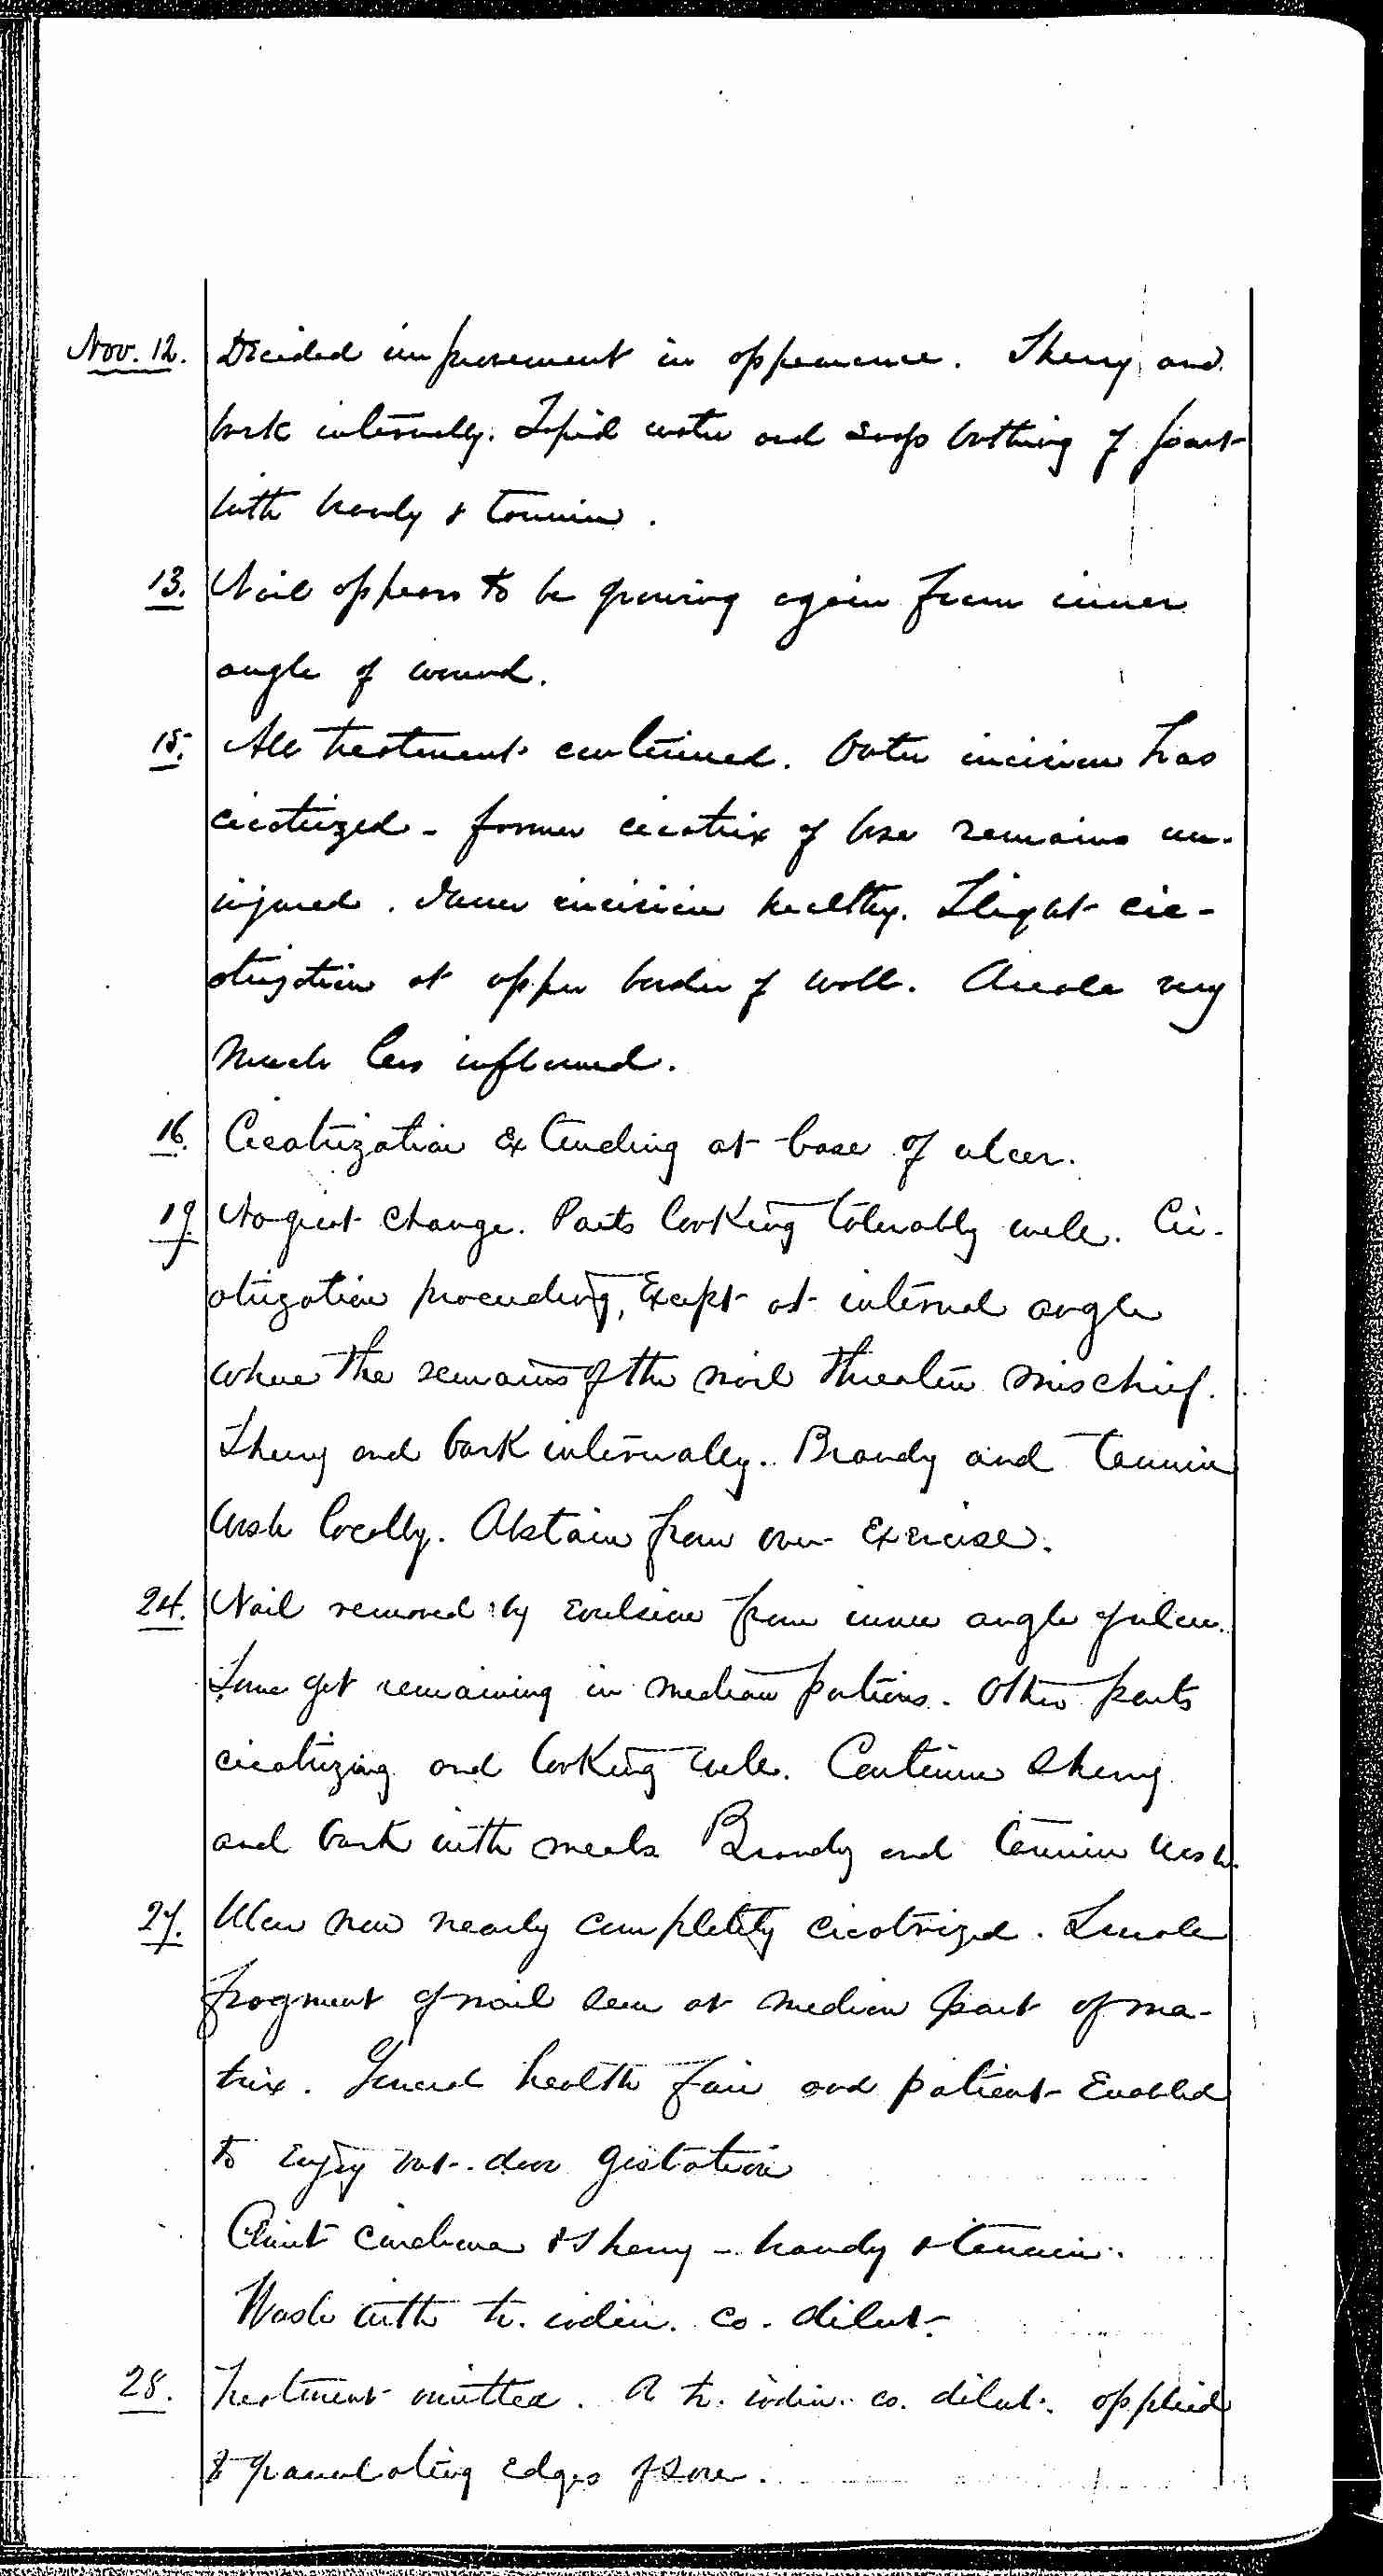 Nov. 12. Decided improvement in appearance. Sherry and
bark internally. Tepid water and soap bathing of part
with brandy & tannin.
13. Nail appears to be growing again from inner
angle of wound.
15. All treatment continued. Outer incision has
cicatrized - former cicatrix of base remains un-
injured. Inner incision healthy. Slight cic-
atrization at upper border of wall. Areola very
much less inflamed.
16. Cicatrization extending at base of ulcer.
19. No great change. Parts looking tolerably well. Cic-
atrization proceeding, Except at internal angle
where the remains of the nail threaten mischief.
Sherry and bark internally. Brandy and tannin
wash locally. Abstain from over Exercise.
24. Nail removed by Evulsion from inner angle of ulcer.
Some yet remaining in median portions. Other parts
cicatrizing and looking well. Continue Sherry
and bark with meals Brandy and tannin wash.
27. Ulcer now nearly completely cicatrized. Small
fragment of nail seen at median part of ma-
trix. General health fair and patient Enabled
to Enjoy out-door gestation
Cinchona & Sherry - brandy & tannin.
Wash with tr. iodin. co. dilut.
28. Treatment omitted. A tr. iodin. co. dilut. applied
to granulating Edges of sore.